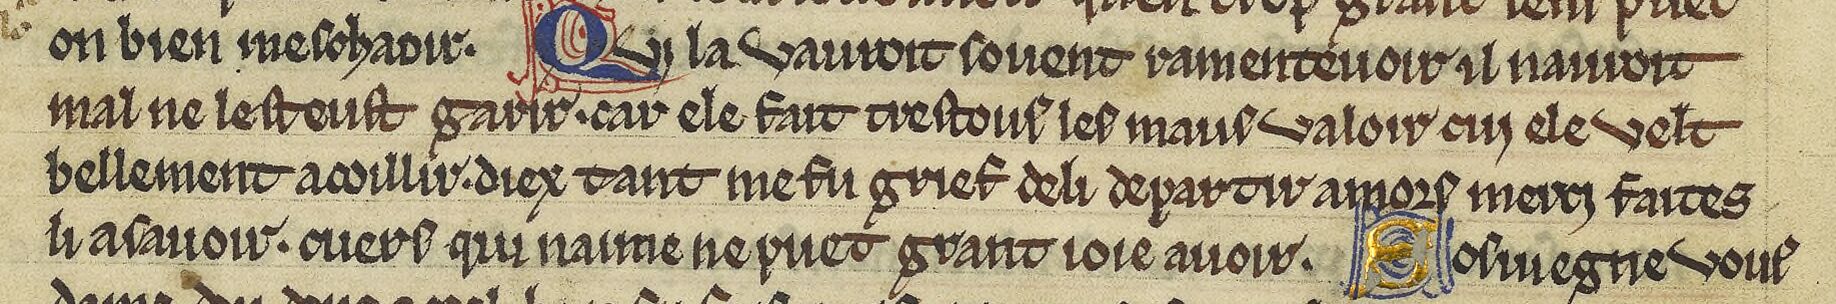 on bien meschaoir. Qvi la vauroit souent ramenteuoir .il nauroit
mal ne lesteust garir .car ele fait trestous les maus valoir cui ele velt
bellement acoillir .diex tant me fu grief deli departir amors merci faites
li asauoir. cuers qui naime ne puet grant ioie auoir. Sosuiegne vous